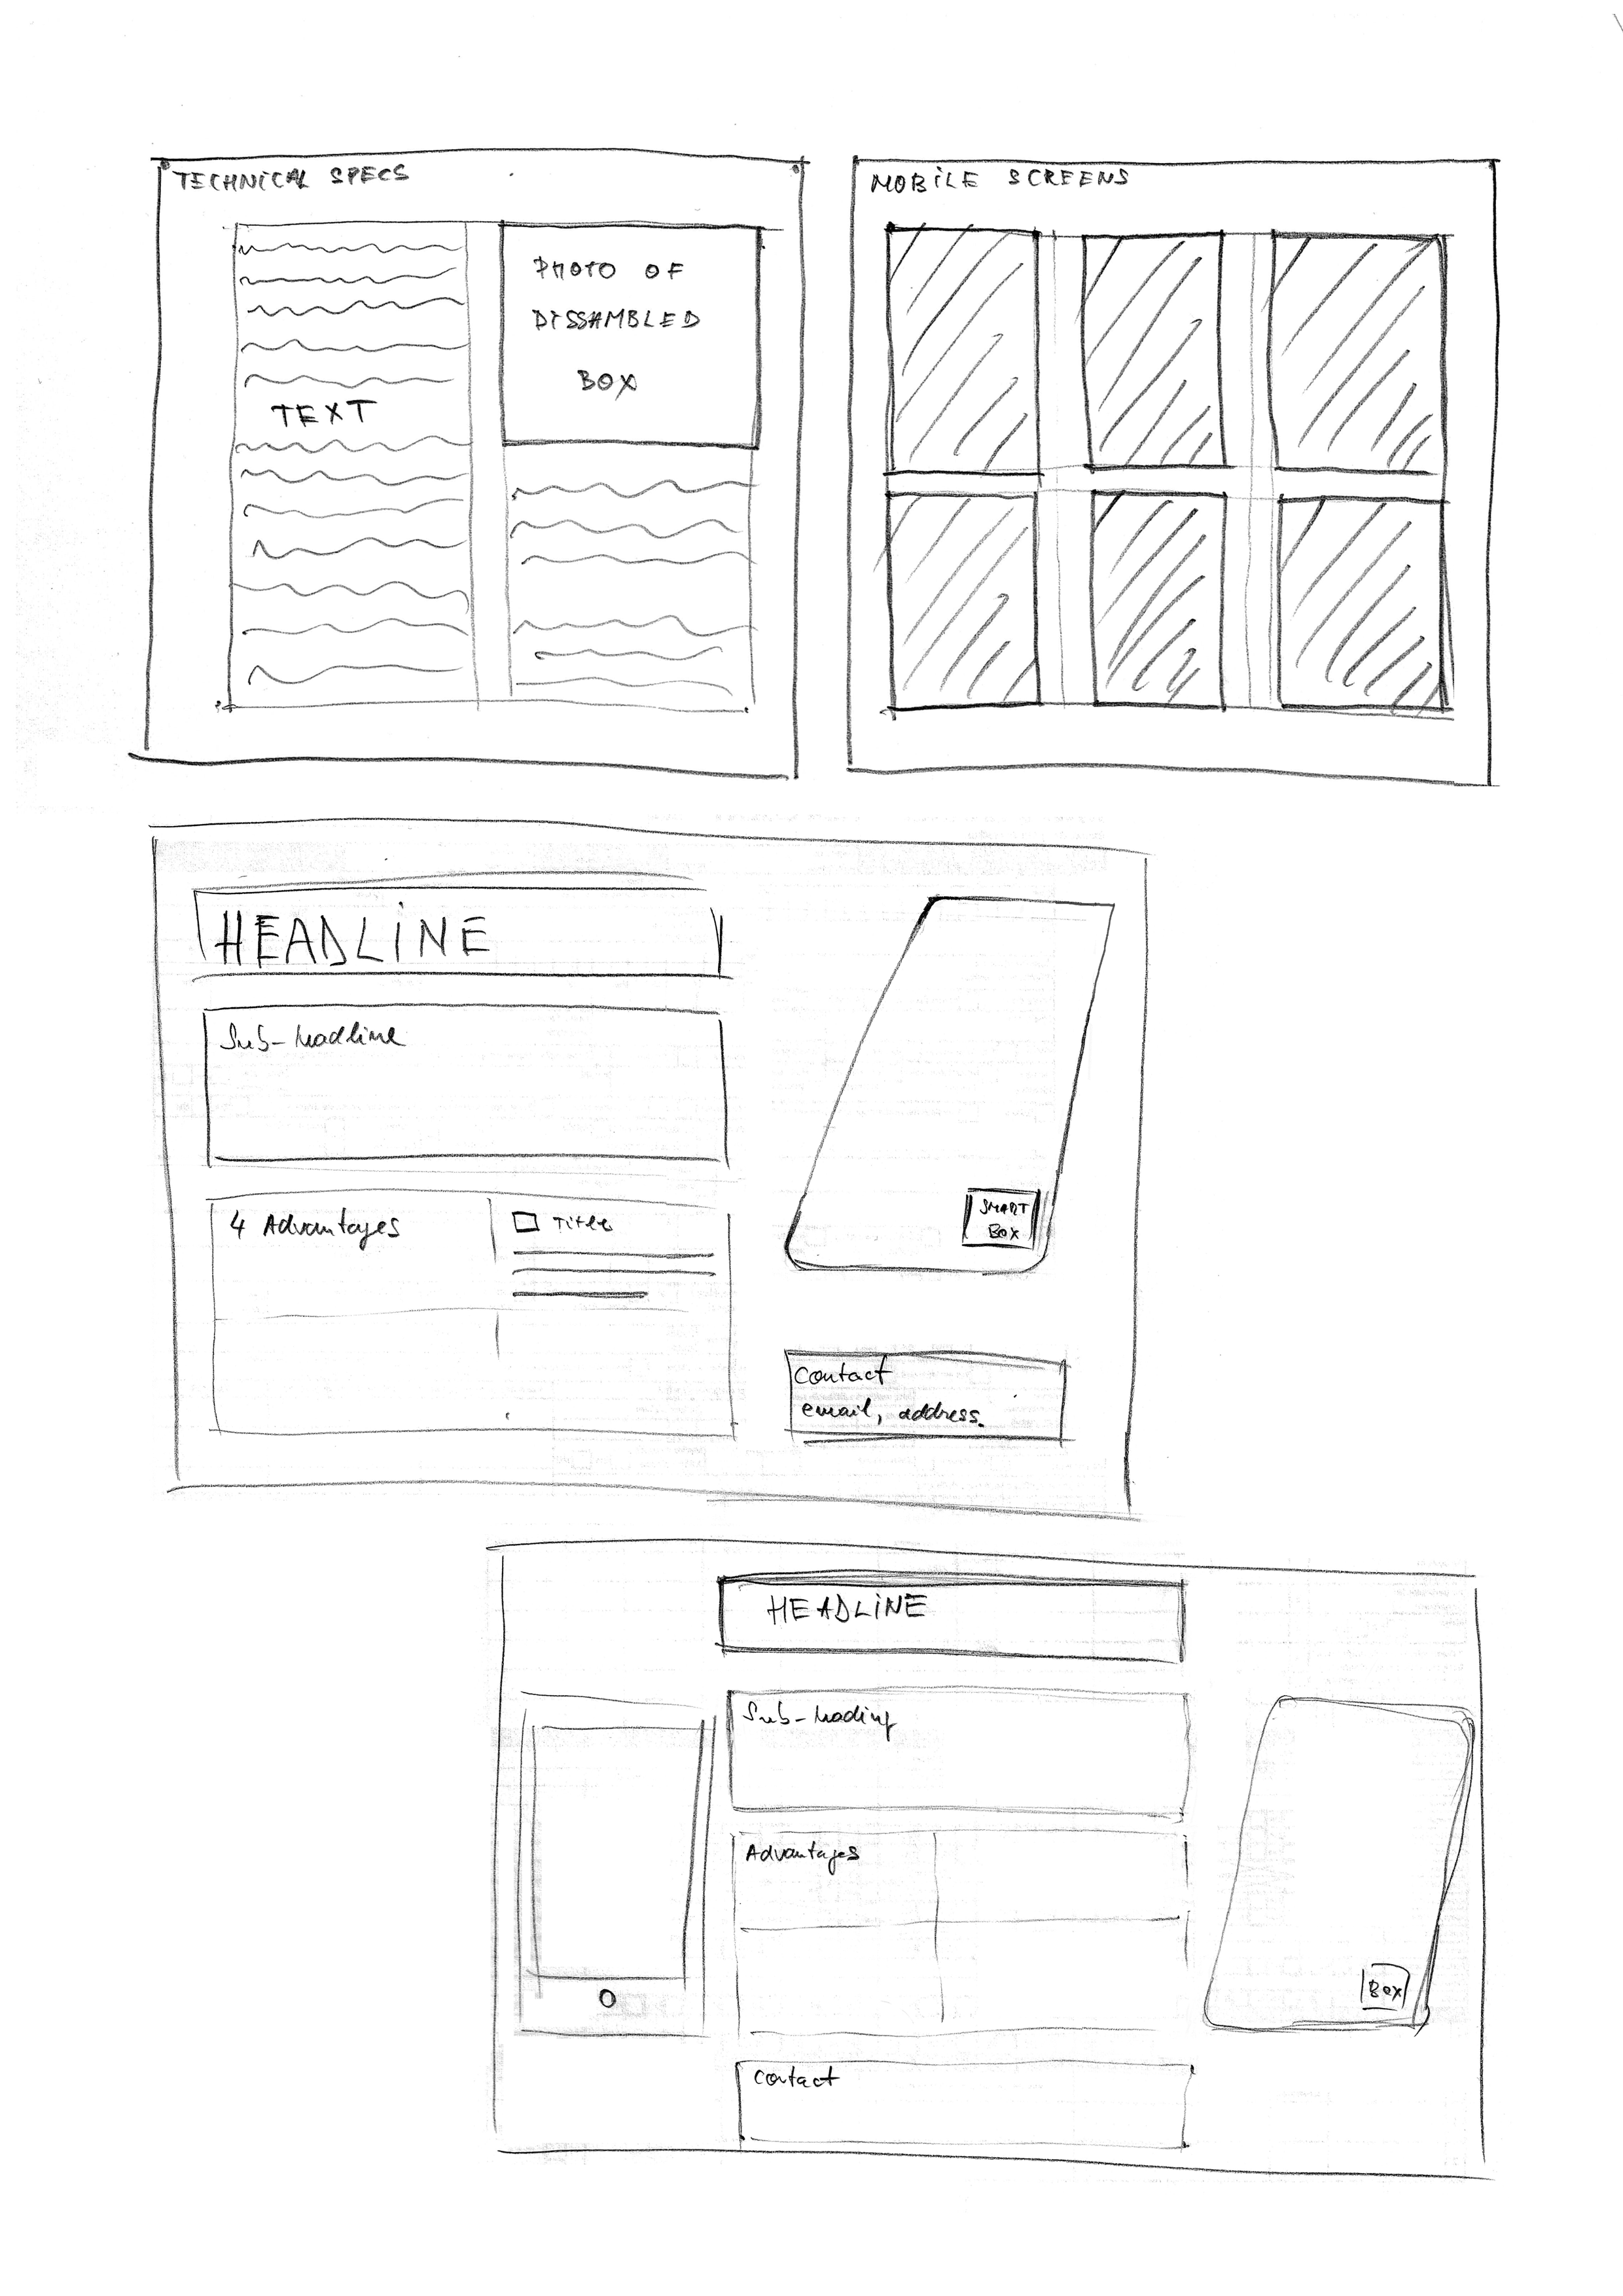 TECHNICAL SPECS
TEXT
PHOTO OF
DISSAMBLED
BOX
MOBILE SCREENS
HEADLINE
Sub-headline
4 Advantages
Title
SMART
BOX
Contact
email, address.
HEADLINE
Sub-heading
Advantages
Box
Contact